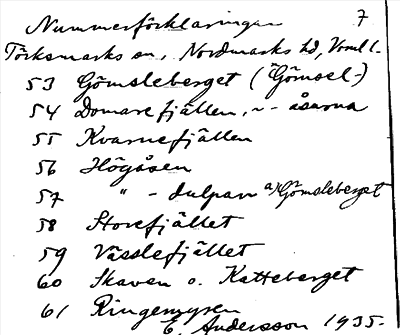 Nummerförklaringar 7
Töcksmarks sn, Nordmarks hd, Vrml l.
53 Gömsleberget (Gömsel-)
54 Domarefjällen, ~ - åsarna
55 Kvarnefjällen
56 Högåsen
57 " - dulpan a/ Gömsleberget
58 Storefjället
59 Vässlefjället
60 Skaven o. Katteberget
61 Ringemyren
E. Andersson 1935.